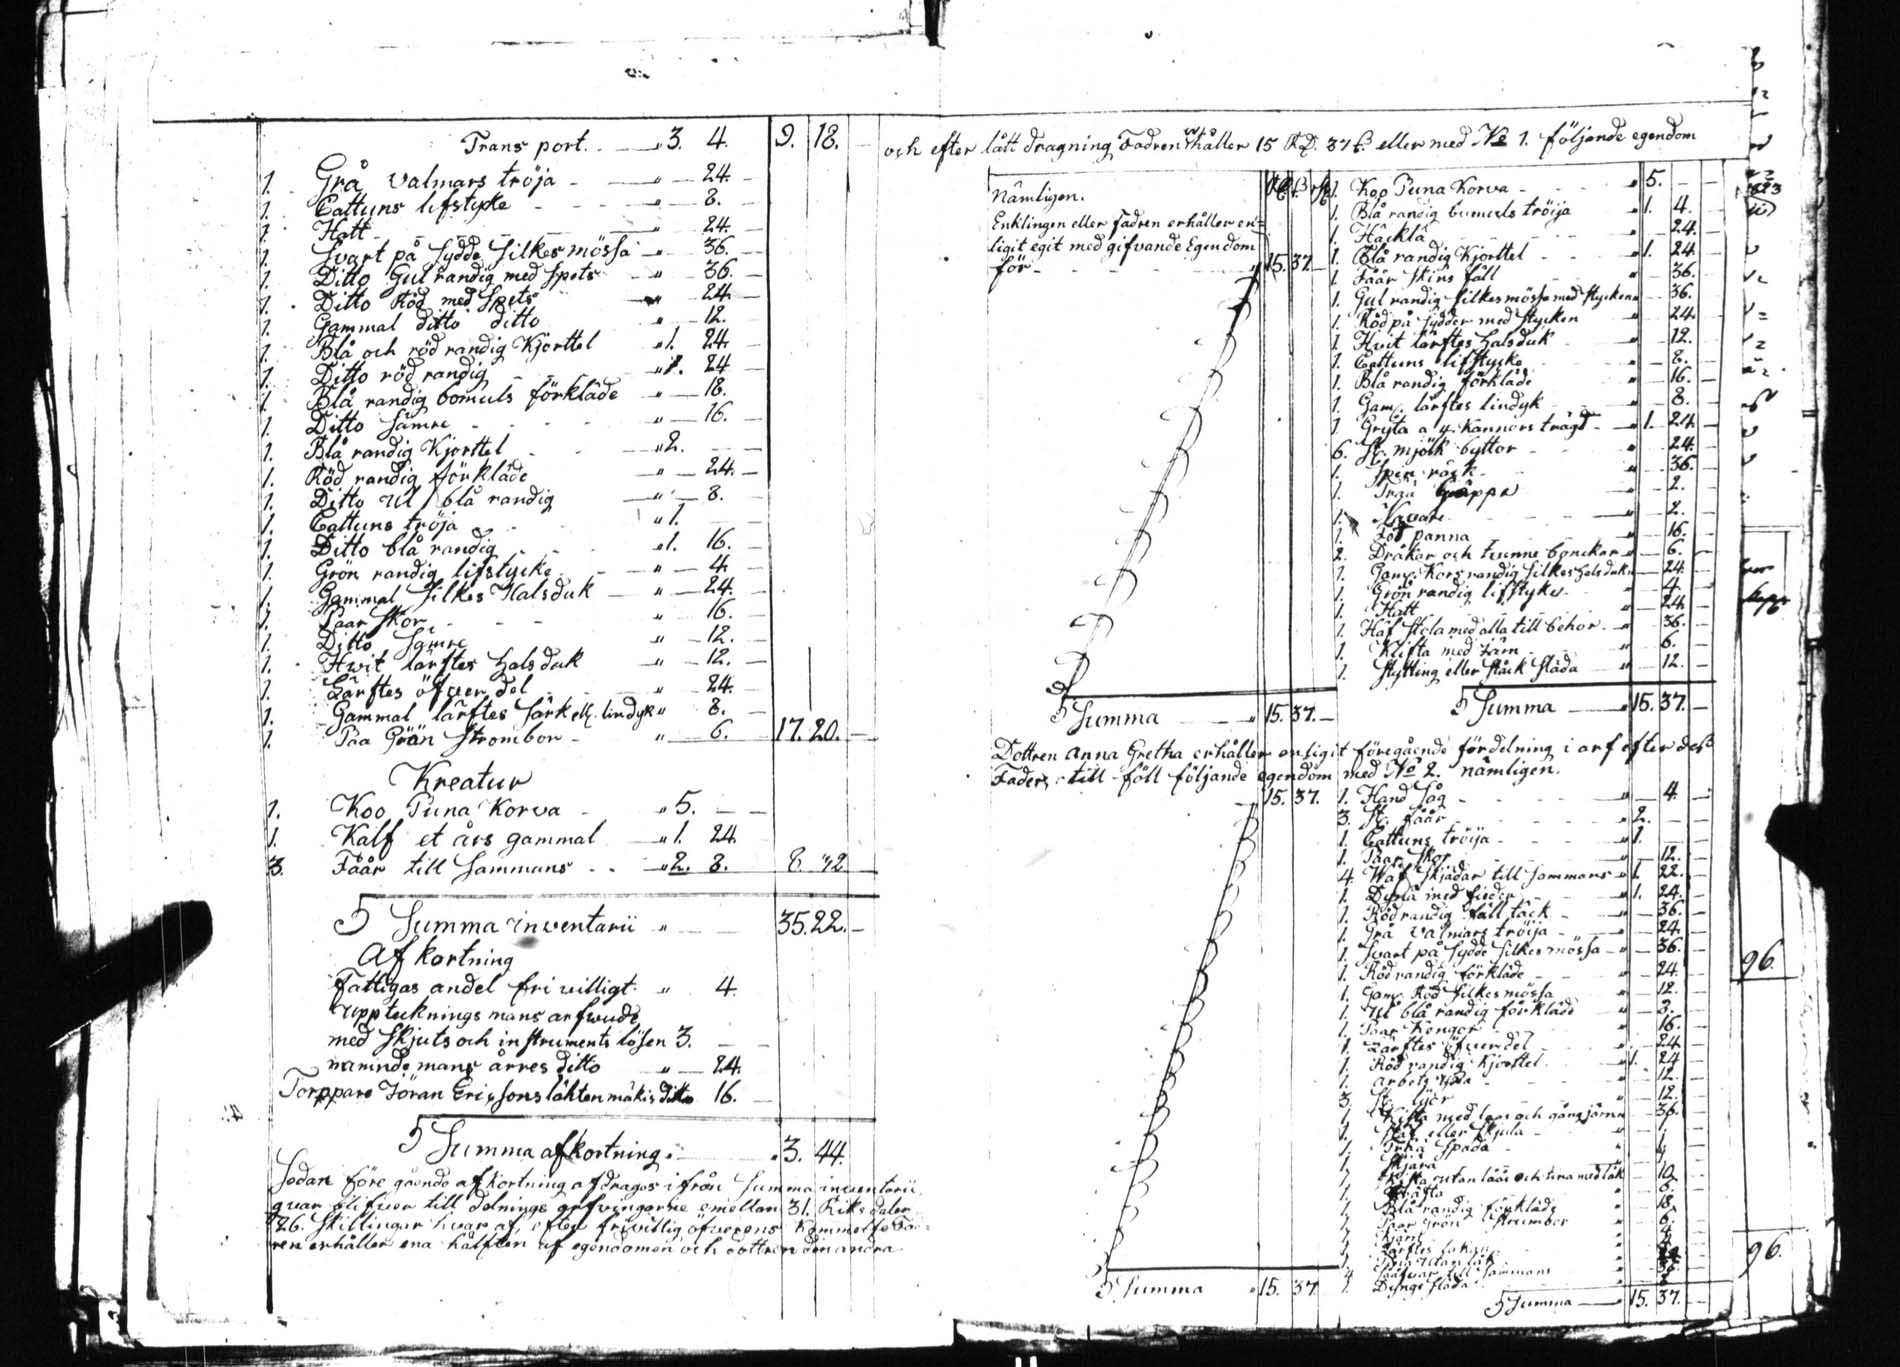 Trans port. . — " 3. 4. 9. 18. —
1. Grå valmars tröja - — " — 24. —
1. Cattuns lifstycke - - - - " — 8. —
1. Hatt - - - - " — 24. —
1. Svart på sydde silkes mössa - " — 36. —
1. Ditto Gul randig med spets - " — 36. —
1. Ditto Röd med spets " — 24. —
1. Gammal ditto ditto " — 12. —
1. Blå och röd randig Kjorttel " 1. 24. —
1. Ditto röd randig - - " 1. 24 —
1. Blå randig bomuls förkläde " — 18. —
1. Ditto sämre - - - - " — 16. —
1. Blå randig Kjorttel - - " 2. — —
1. Röd randig förkläde — " — 24. —
1. Ditto ul blå randig — " — 8. —
1. Cattuns tröja - - " 1. — —
1. Ditto blå randig - - - " 1. 16. —
1. Grön randig lifstycke - — " — 4. —
1. Gammal silkes Halsduk — " — 24. —
1. Paar Skor - - - " — 16. —
1. Ditto Sämre " — 12. —
1. Hwit lärftes halsduk " — 12. —
1. Lärftes öfver del - - " — 24. —
1. Gammal lärftes särk ell. lindyk " 8. —
1. Paa Grån strombor - " — 6. 17. 20. —
Kreatur
1. Koo Puna Korva - " 5. — —
1. Kalf et års gammal " 1. 24. —
3. Fåår till sammans . . " 2. 8. 8. 32 —
Summa inventarii " — — 35. 22. —
Afkortning
Fattigas andel frivilligt. " 4.
upptecknings mans arfwude
med skjuts och instruments lösen 3. — —
namnde mans arves ditto " — 24. —
Torppare Jöran Erissons lähtenmäkis ditto 16. —
Summa afkortning. — " 3. 44.
Sedan före gående afkortning afdrages ifrån Summa inventarii,
quar blifver till delnings arfvingarne emellan 31. Riksdaler
26. Skillingar hvar af, efter frivillig öfverens kommelse Fad-
ren erhåller ena hälften af egendomen och dottren den andra.
och efter lått dragning Fadren erhåller 15 RD. 37 ß. eller med No 1. följande egendom
Nämligen.
Enklingen eller Fadren erhåller en-
ligit egit med gifvande Egendom
för - - - - - " 15. 37. —
1. Koo Puna Korva - - - " 5. — —
1. Blå randig bomuls tröija " 1. 4. —
1. Häcklå - - - - " — 24. —
1. Blå randig Kjorttel - - " 1. 24. —
1. Fåår skins fäll - " — 36. —
1. Gul randig silkes mössa med stycken " 36. —
1. Röd på sydder med stycken " — 24. —
1. Hvit lärftes halsduk - " — 12. —
1. Cattuns lifstycke - " — 8. —
1. Blå randig förkläde " — 16. —
1. Gam. lärftes lindyk - " — 8. —
1. Gryta a 4. Kannors trågd - " 1. 24. —
6. St. mjölk byttor - " — 24. —
1. Spin råck - - " — 36. —
1. Träå " — 2. —
1. Kvarn - - - " — 2. —
1. Fot panna - " — 16. —
2. Dråkar och tunne bonckar " — 6. —
1. Gam. Kors randig silkes halsduk " 24. —
1. Grön randig lifstycke - " — 4. —
1. Hatt - - " — 24. —
1. Häf stola med alla till behör - " — 36. —
1. Klifta med räm - " — 6. —
1. Stytting eller ståck släda " — 12. —
Summa — " 15. 37. —
Summa — " 15. 37. —
Dottren Anna Gretha erhåller enligit föregående fördelning i arf efter dess
Faders till fäll följande egendom med No 2. nämligen.
15. 37.
1. Hand såg - - - " — 4. —
3. St. fåår - - - " 2. — —
1. Cattuns tröija - - " 1. — —
1. Paar skor - " — 12. —
4. Wäf skjädar till sammans " 1. 22. —
1. Dyna med fieder - " 1. 24. —
1. Röd randig fäll täck - " — 36. —
1. Grå valmars tröija - " — 24. —
1. Svart på sydde silkes mössa - " — 36. —
1. Röd randig förkläde - " — 24. —
1. Gam. Röd silkes mössa " — 12. —
1. Ul blå randig förkläde " — 3. —
1. Paar Kengor - " — 16. —
1. Lärftes öfverdel - " — 24. —
1. Röd randig Kjorttel - " 1. 24 —
1. arbets - - " — 12. —
3. St. - " — 12. —
1. Kista med laas och gång järn " 36. —
1. eller skjula -
1. Träå spada -
1. Skjära
1. Kista utan låås och med låk 10.
1. Blå randig förkläde " 18.
1. Paar Grön strumbor " 6.
1. Lärftes lakan
till sammans
1. Dynge släda -
Summa " 15. 37.
Summa — " 15. 37. —
96.
96.